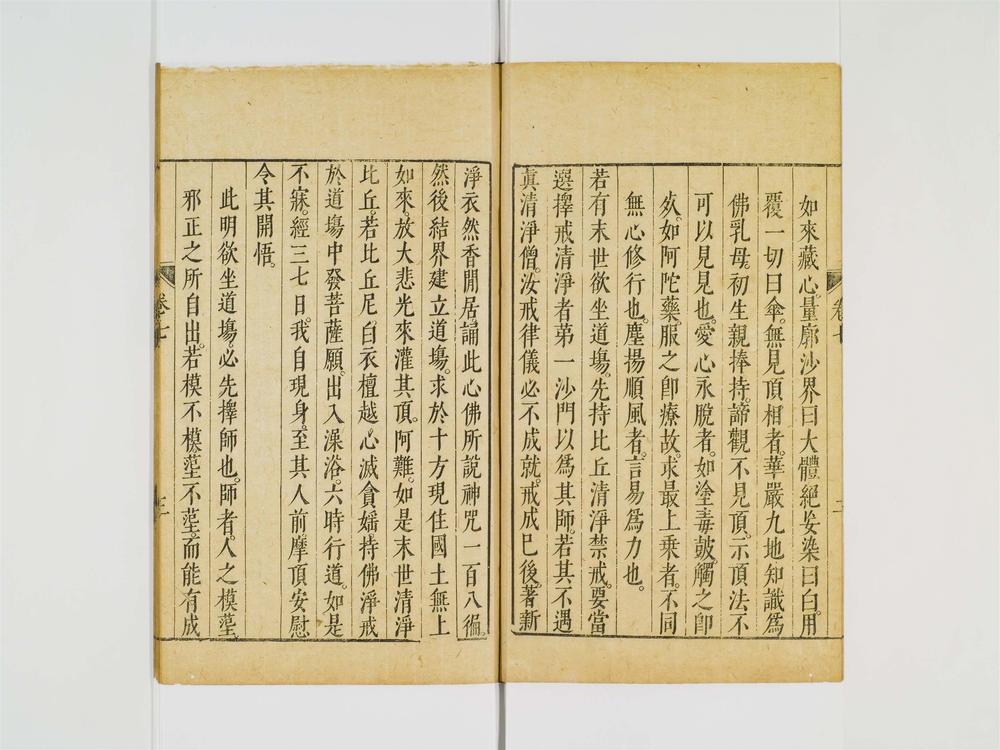 如來藏心。量廓沙界曰大體絕妄染曰白。用
覆一切曰傘。無見頂相者。華嚴九地知識爲
佛乳母。初生親捧持。諦觀不見頂。示頂法不
可以見見也。愛心永脫者。如塗毒皷。觸之卽
𣧑。如阿陀藥。服之卽療故。求最上乘者。不同
無心修行也。塵揚順風者。言易爲力也。
若有末世欲坐道塲。先持比丘清淨禁戒。要當
選擇戒清淨者第一沙門以爲其師。若其不遇
眞清淨僧。汝戒律儀必不成就。戒成已後。著新
淨衣然香閒居誦此心佛所說神咒一百八徧。
然後結界建立道塲。求於十方現住國土無上
如來。放大悲光來灌其頂。阿難。如是末世清淨
比丘。若比丘尼白衣檀越。心滅貪婬持佛淨戒
於道塲中發菩薩願。出入澡浴。六時行道。如是
不寐。經三七日。我自現身。至其人前摩頂安慰
令其開悟。
此明欲坐道塲。必先擇師也。師者。人之模𫮃
邪正之所自出。若模不模𫮃不𫮃。而能有成
卷七
卷七
三